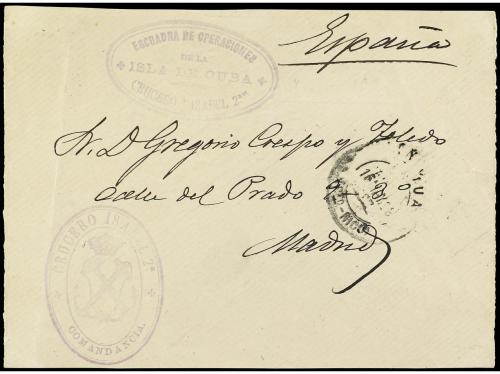 ESCUADRA DE OPERACIONES
DE LA
ISLA DE CUBA
CRUCERO ISABEL 2ª
España
Sr. D. Gregorio Crespo y Toledo
Calle del Prado 9
Madrid
CRUCERO ISABEL 2ª
COMANDANCIA.